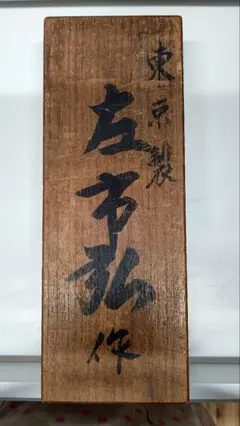 東京製
左市弘
作